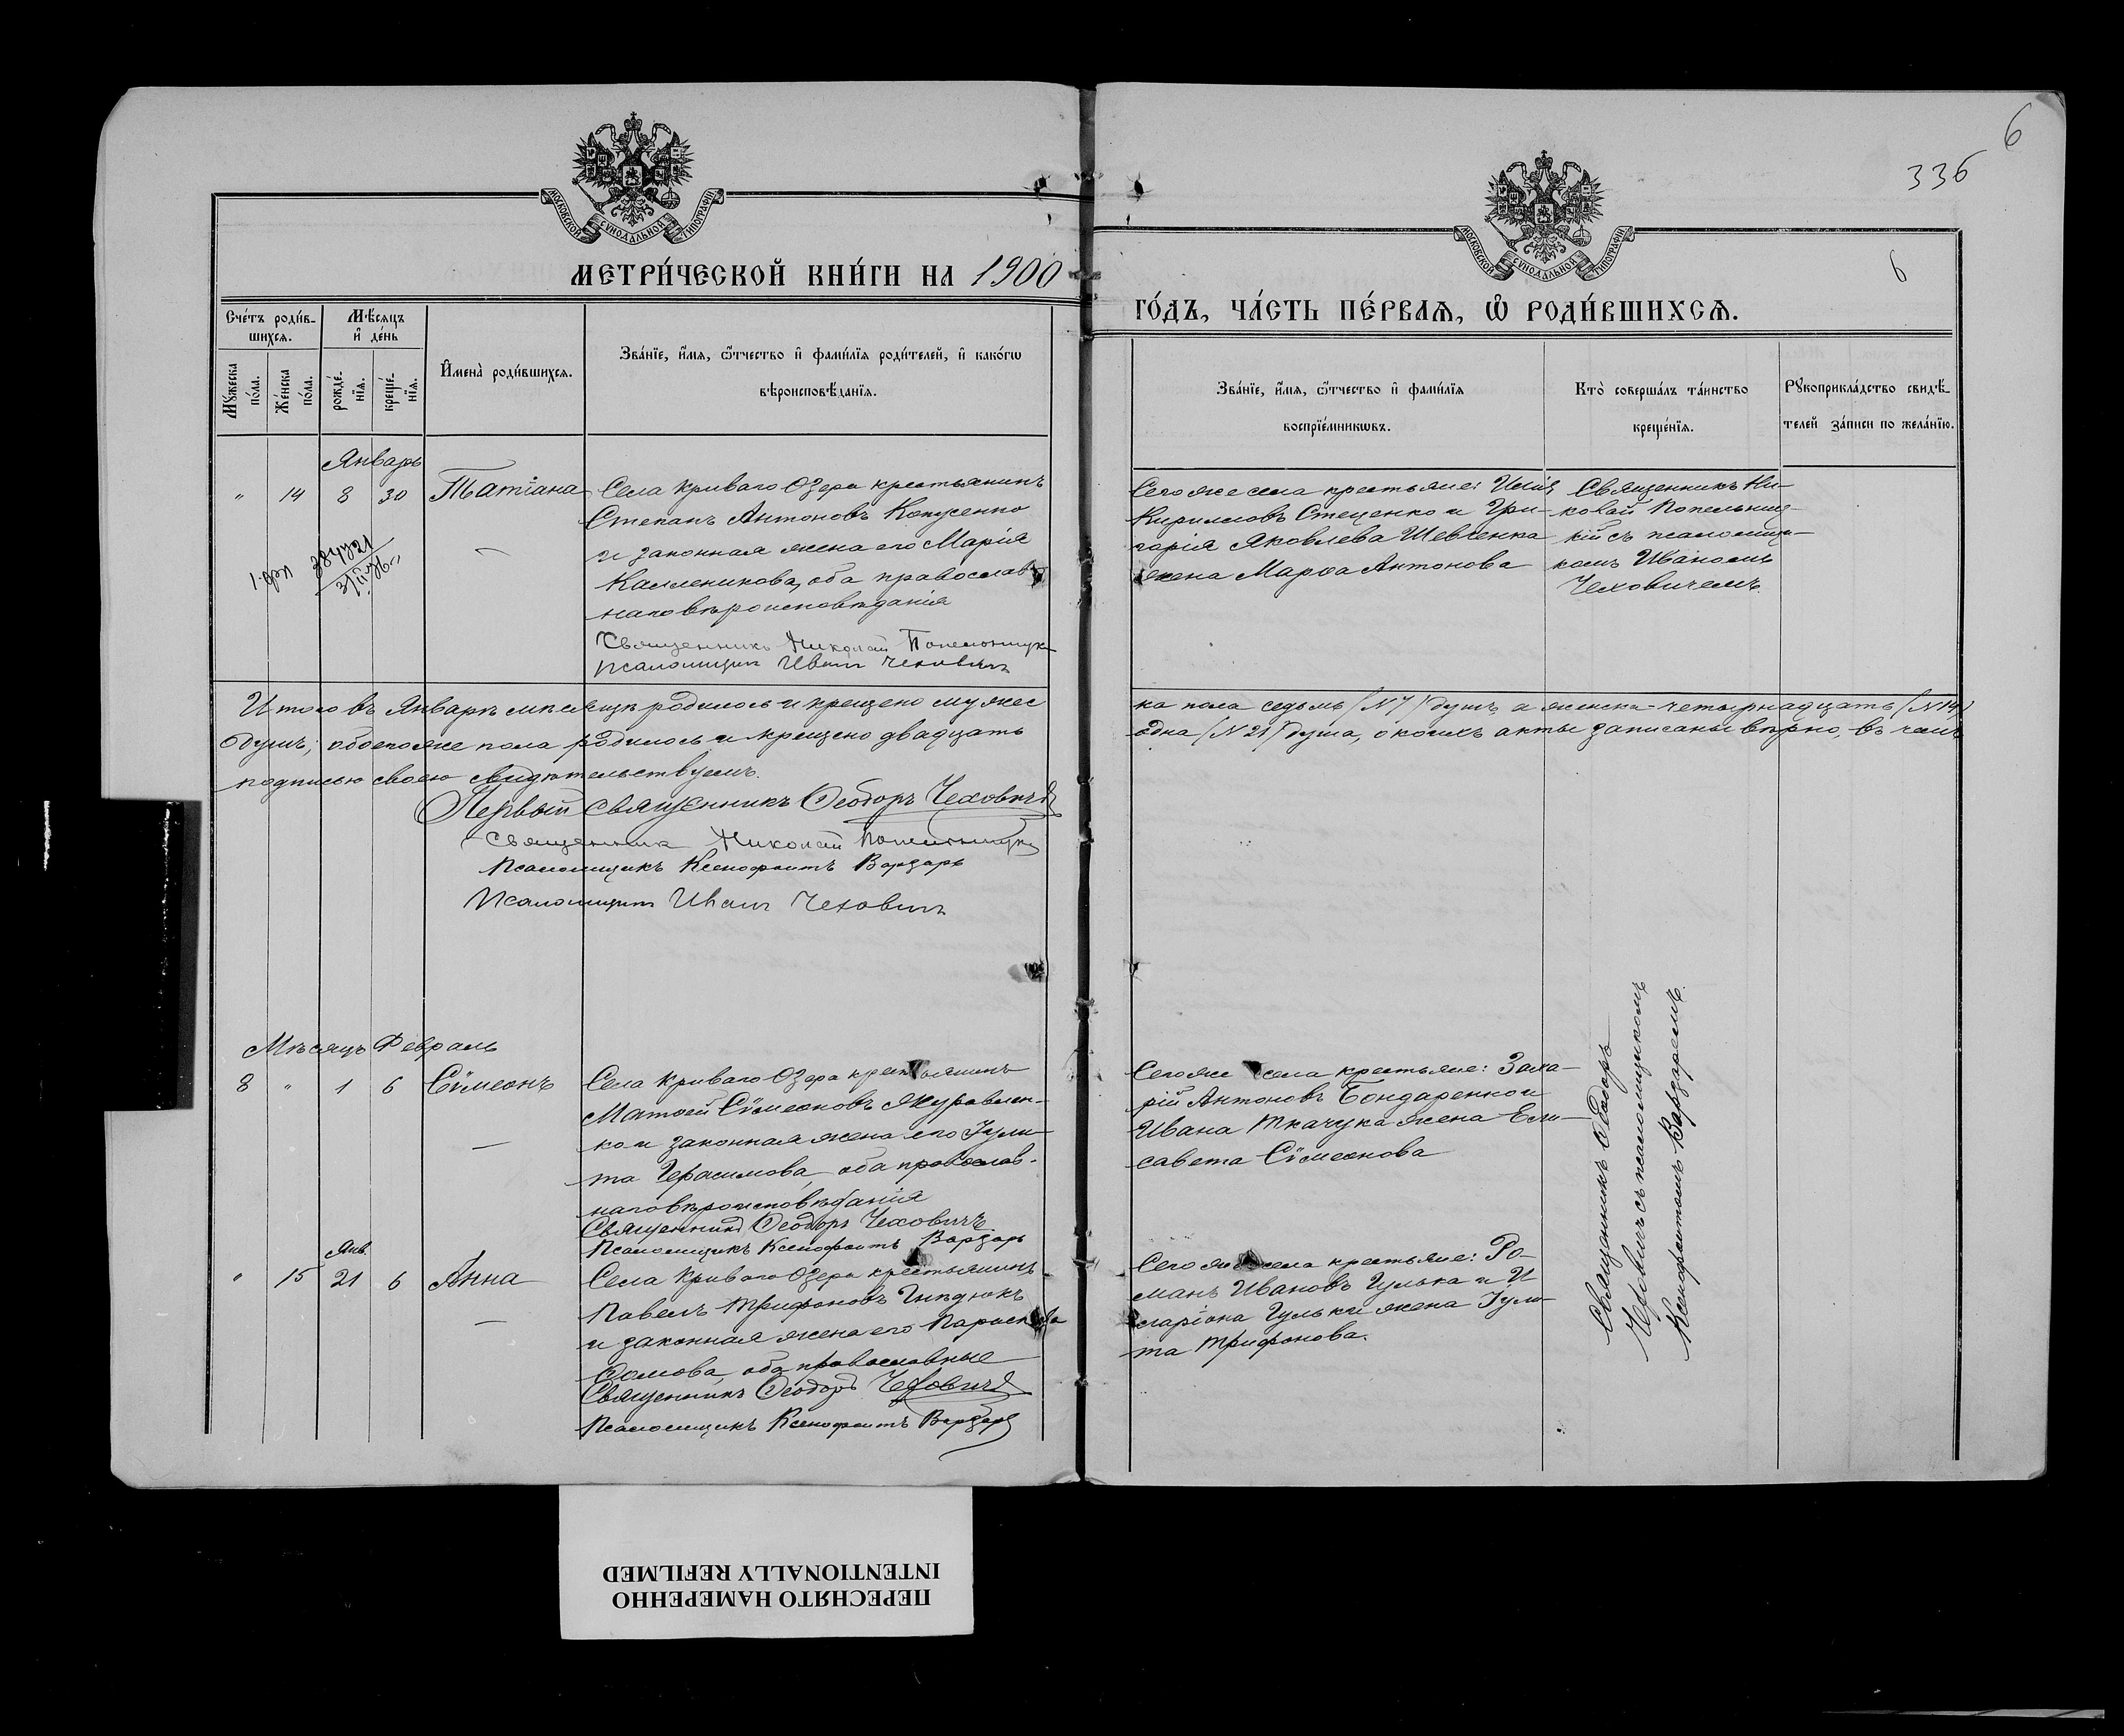 6
336
6
МОСКОВСКОЙ СѴНОДАЛЬНОЙ ТИПОГРАФІИ
МОСКОВСКОЙ СѴНОДАЛЬНОЙ ТИПОГРАФІИ
МЕТРИ́ЧЕСКОЙ КНИ́ГИ НА 1900
ГО́ДЪ, ЧА́СТЬ ПЕ́РВАѦ, Ѽ РОДИ́ВШИХСѦ.
Сче́тъ роди́в-
шихсѧ.
Мѣ́сѧцъ
и҆ де́нь
Мꙋ́жеска
по́ла.
Же́нска
по́ла.
рожде́-
нїѧ.
креще́-
нїѧ.
И҆мена̀ роди́вшихсѧ.
Зва́нїе, и҆́мѧ, ѻ҆́тчество и҆ фами́лїѧ роди́телей, и҆ како́гѡ
вѣроисповѣ́данїѧ.
Зва́нїе, и҆́мѧ, ѻ҆́тчество и҆ фами́лїѧ
воспрїе́мникѡвъ.
Кто̀ соверша́лъ та́инство
креще́нїѧ.
Рꙋкоприкла́дство свидѣ́-
телей за́писи по жела́нїю.
Январь
" 14 8 30 Татіана
Села Криваго Озера крестьянинъ
Степанъ Антоновъ
и законная жена его Марія
Каленикова, оба православ
наго вѣроисповѣданія
Священникъ Николай Попельницкій
Псаломщикъ Иванъ Чеховичъ
Сего же села крестьяне:
Кирилловъ Стеценко и Гри-
горія Яковлева Шевченка
жена Марѳа Антонова
Священникъ Ни-
колай Попельниц-
кій съ псаломщи-
комъ Иваномъ
Чеховичемъ
Итого въ Январѣ мѣсяцѣ родилось и крещено мужес
ка пола седьмь (№ 7) душъ, а женска - четырнадцать (№ 14)
душъ; обоего же пола родилось и крещено двадцать
одна (№ 21) душа, о коихъ акты записаны вѣрно, въ чемъ
подписью своею свидѣтельствуемъ.
Первый священникъ Ѳеодоръ Чеховичъ
Священникъ Николай Попельницкій
Псаломщикъ Ксенофонтъ Варзарь
Псаломщикъ Иванъ Чеховичъ
Мѣсяцъ Февраль
8 " 1 6 Сѵмеонъ
Села Криваго Озера крестьянинъ
Матѳей Сѵмеоновъ Журавлен-
ко и законная жена его Іули-
та Герасимова, оба православ-
наго вѣроисповѣданія
Священникъ Ѳеодоръ Чеховичъ
Псаломщикъ Ксенофонтъ Варзарь
Сего же села крестьяне: Заха-
рій Антоновъ Бондаренко и
Ивана Ткачука жена Ели-
савета Сѵмеонова
Янв.
" 15 21 6 Анна
Села Криваго Озера крестьянинъ
Павелъ Трифоновъ
и законная жена его Параскева
Ѳомова, оба православные
Священникъ Ѳеодоръ Чеховичъ
Псаломщикъ Ксенофонтъ Варзарь
Сего же села крестьяне: Ро-
манъ Ивановъ Гулька и И
ларіона Гульки жена Іули-
та Трифонова.
Священникъ Ѳеодоръ
Чеховичъ съ псаломщикомъ
Ксенофонтомъ Варзаремъ.
ПЕРЕСНЯТО НАМЕРЕННО
INTENTIONALLY REFILMED